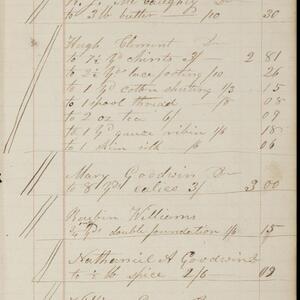 to 3 lb butter /10 30
Hugh Clement Dr
to 7 1/2 yd chints 3/ 2 81
to 2 1/2 yd lace footing /10 26
to 1 yd cotton shirting 1/3 15
to 1 spool thread /8 08
to 2 oz tea 6/ 09
to 1 yd gauze ribin 1/6 18
to 1 skin silk /6 06
Mary Goodwin Dr
to 8 yd calico 3/ 3 00
Reubin Williams
yds double foundation 1/6 15
Nathaniel A Goodwin
to 1/4 lb spice 2/6 09